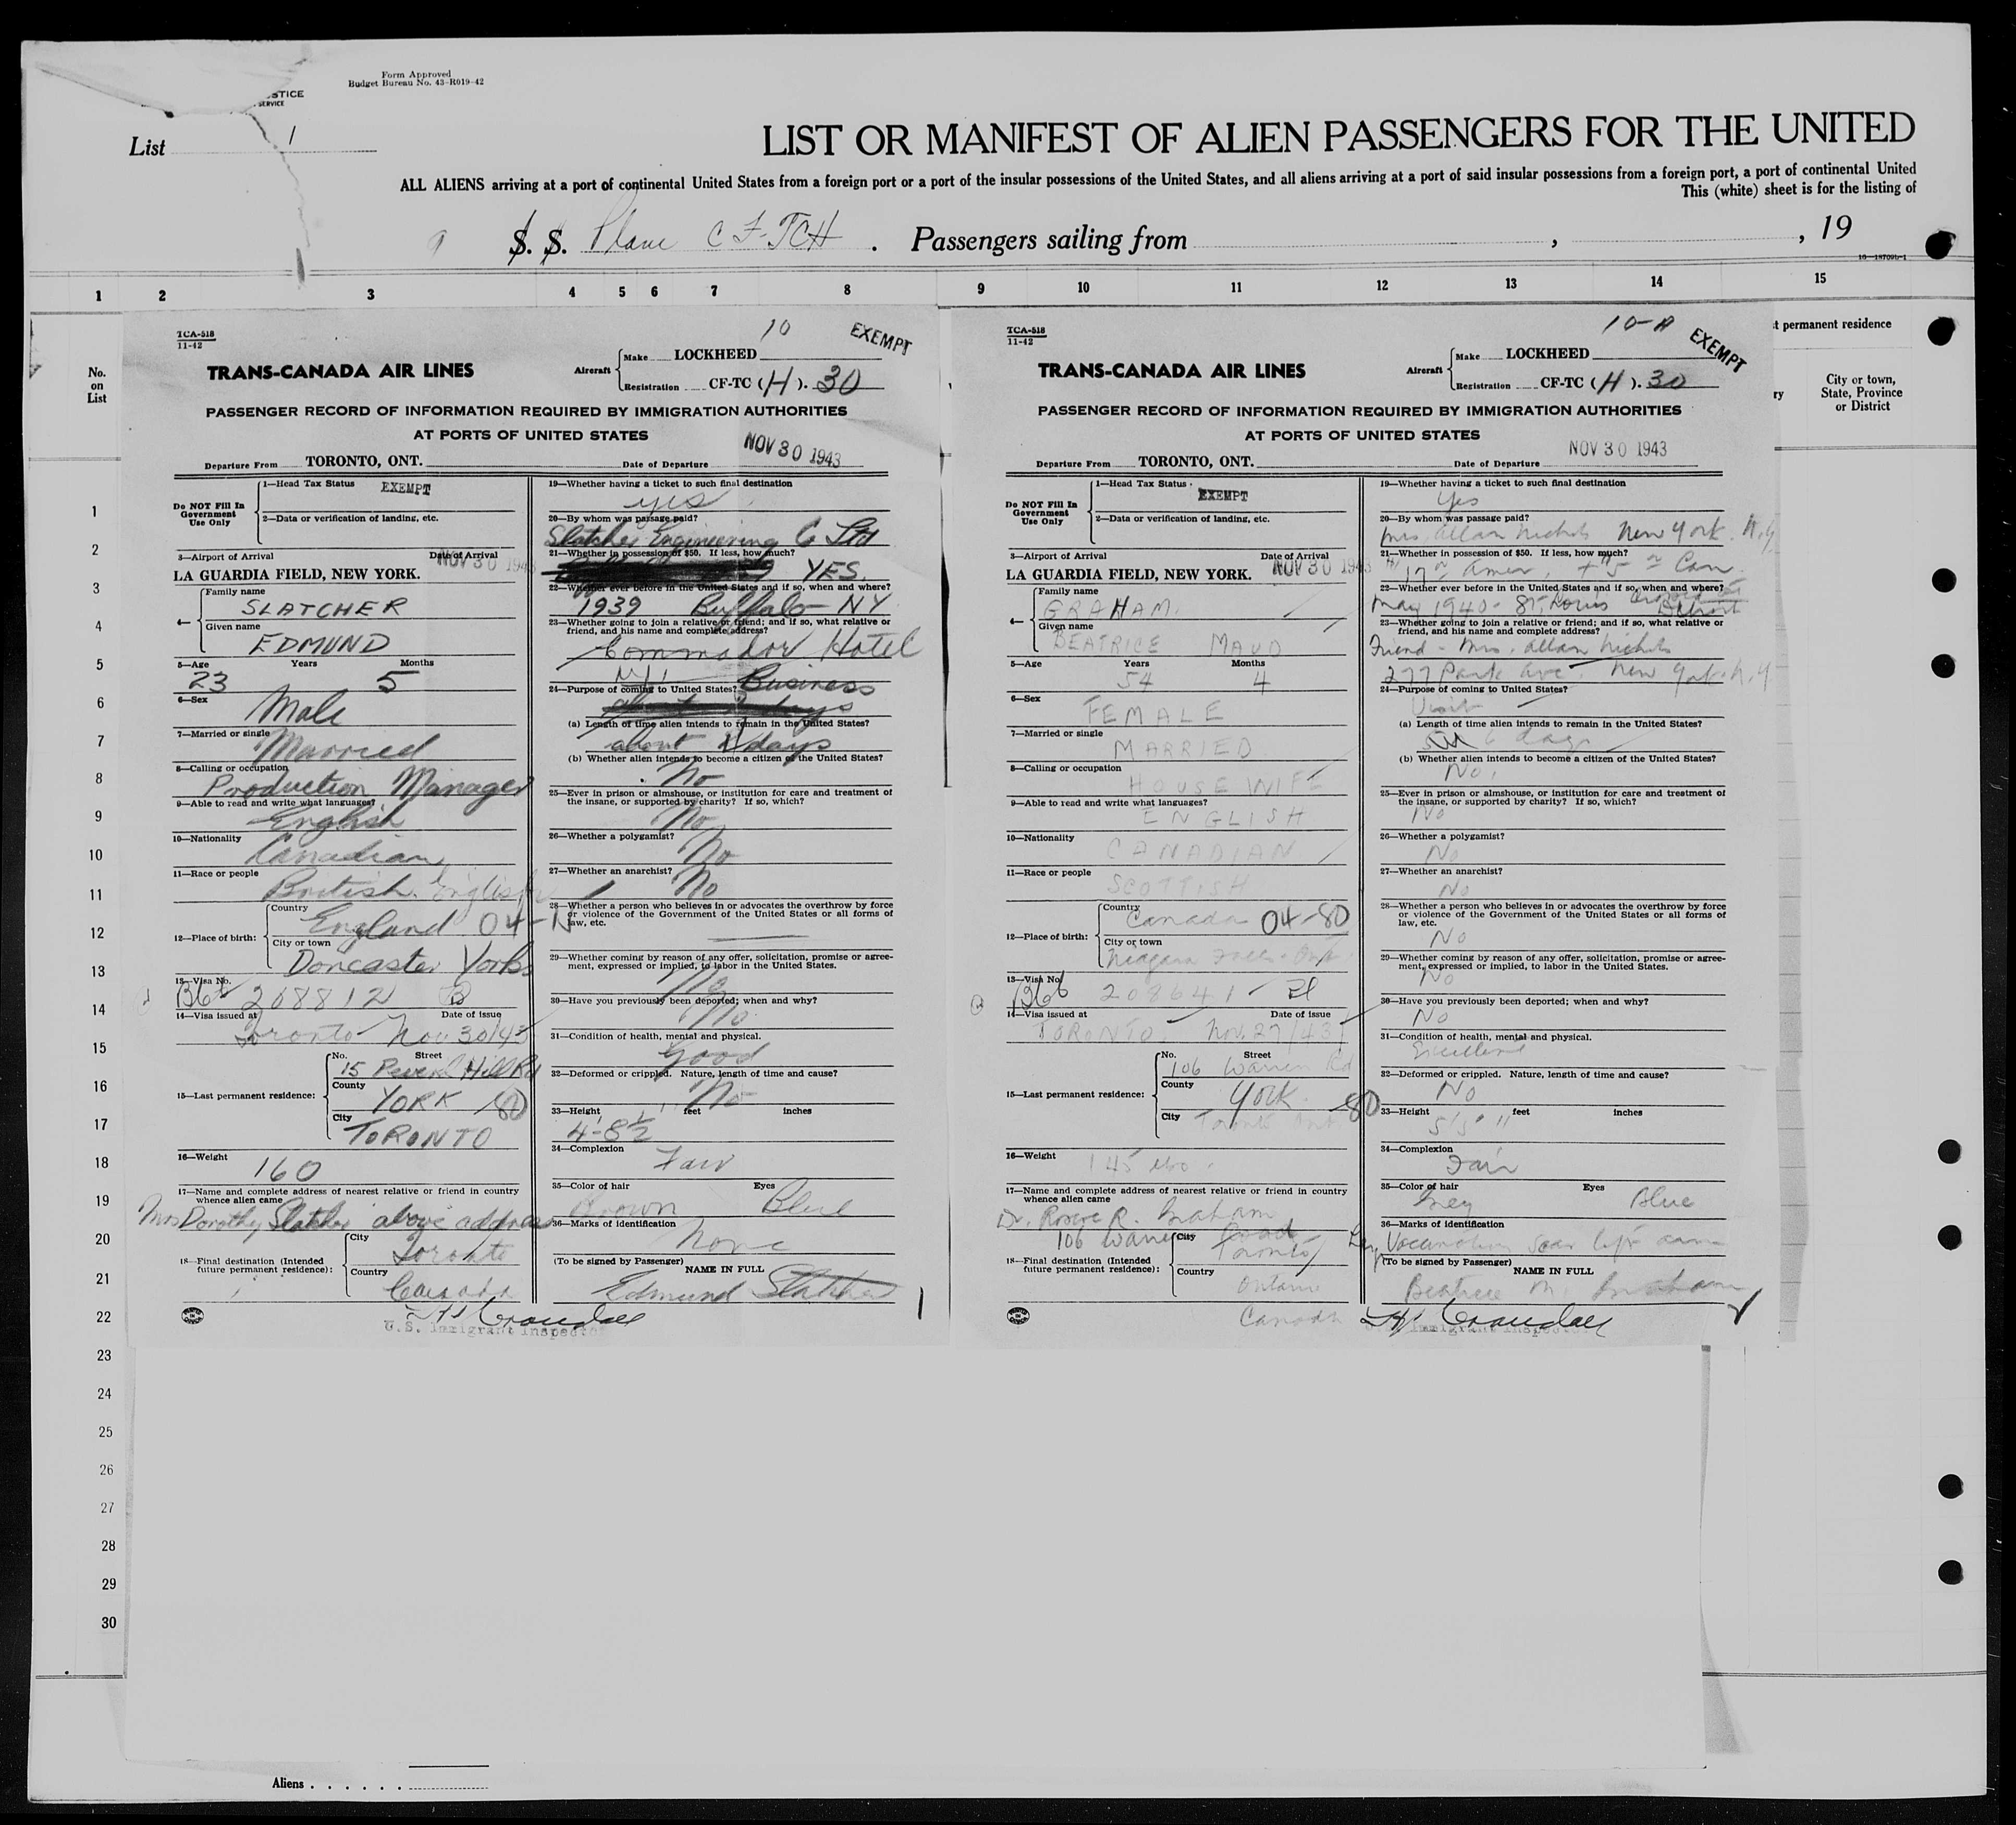 Form Approved
Budget Bureau No. 43-R019-42
STICE
SERVICE
List 1
LIST OR MANIFEST OF ALIEN PASSENGERS FOR THE UNITED
ALL ALIENS arriving at a port of continental United States from a foreign port or a port of the insular possessions of the United States, and all aliens arriving at a port of said insular possessions from a foreign port, a port of continental United
This (white) sheet is for the listing of
S. S. Plane CF-TCH . Passengers sailing from , , 19
16—18709b-1
1 2 3 4 5 6 7 8 9 10 11 12 13 14 15
No.
on
List
t permanent residence
ry
City or town,
State, Province
or District
1
2
3
4
5
6
7
8
9
10
11
12
13
14
15
16
17
18
19
20
21
22
23
24
25
26
27
28
29
30
Aliens . . . . . .
TCA-518
11-42
10
EXEMPT
TRANS-CANADA AIR LINES
Aircraft
Make LOCKHEED
Registration CF-TC (H). 30
PASSENGER RECORD OF INFORMATION REQUIRED BY IMMIGRATION AUTHORITIES
AT PORTS OF UNITED STATES
Departure From TORONTO, ONT. Date of Departure NOV 30 1943
Do NOT Fill In
Government
Use Only
1—Head Tax Status EXEMPT
2—Data or verification of landing, etc.
3—Airport of Arrival Date of Arrival
NOV 30 1943
LA GUARDIA FIELD, NEW YORK.
4—
Family name
SLATCHER
Given name
EDMUND
5—Age Years Months
23 5
6—Sex
Male
7—Married or single
Married
8—Calling or occupation
Production Manager
9—Able to read and write what languages?
English
10—Nationality
Canadian
11—Race or people
British. English
12—Place of birth:
Country
England 04-N
City or town
Doncaster Yorks
13—Visa No.
B66 208812 B
14—Visa issued at Date of issue
Toronto Nov 30/43
15—Last permanent residence:
No. Street
15 Hill Rd
County
YORK 80
City
TORONTO
16—Weight
160
17—Name and complete address of nearest relative or friend in country
whence alien came
Mrs Dorothy Slatcher above address
18—Final destination (Intended
future permanent residence):
City
Toronto
Country
Canada
19—Whether having a ticket to such final destination
yes
20—By whom was passage paid?
Slatcher Engineering Co Ltd
21—Whether in possession of $50. If less, how much?
YES.
22—Whether ever before in the United States and if so, when and where?
1939 Buffalo NY
23—Whether going to join a relative or friend; and if so, what relative or
friend, and his name and complete address?
Commodor Hotel
N.Y.
24—Purpose of coming to United States? Business
(a) Length of time alien intends to remain in the United States?
about days
(b) Whether alien intends to become a citizen of the United States?
No
25—Ever in prison or almshouse, or institution for care and treatment of
the insane, or supported by charity? If so, which?
No
26—Whether a polygamist?
No
27—Whether an anarchist?
No
28—Whether a person who believes in or advocates the overthrow by force
or violence of the Government of the United States or all forms of
law, etc.
29—Whether coming by reason of any offer, solicitation, promise or agree-
ment, expressed or implied, to labor in the United States.
No
30—Have you previously been deported; when and why?
No.
31—Condition of health, mental and physical.
Good
32—Deformed or crippled. Nature, length of time and cause?
No
33—Height feet inches
4-8½
34—Complexion
Fair
35—Color of hair Eyes
Brown Blue
36—Marks of identification
None
(To be signed by Passenger)
NAME IN FULL
Edmund Slatcher
Crandall
U.S. Immigrant Inspector
TCA-518
11-42
10-A
EXEMPT
TRANS-CANADA AIR LINES
Aircraft
Make LOCKHEED
Registration CF-TC (H). 30
PASSENGER RECORD OF INFORMATION REQUIRED BY IMMIGRATION AUTHORITIES
AT PORTS OF UNITED STATES
Departure From TORONTO, ONT. Date of Departure NOV 30 1943
Do NOT Fill In
Government
Use Only
1—Head Tax Status EXEMPT
2—Data or verification of landing, etc.
3—Airport of Arrival Date of Arrival
NOV 30 1943
LA GUARDIA FIELD, NEW YORK.
4—
Family name
GRAHAM.
Given name
BEATRICE MAUD
5—Age Years Months
54 4
6—Sex
FEMALE
7—Married or single
MARRIED
8—Calling or occupation
HOUSE WIFE
9—Able to read and write what languages?
ENGLISH
10—Nationality
CANADIAN
11—Race or people
SCOTTISH
12—Place of birth:
Country
Canada 04-80
City or town
Niagara Falls - Ont.
13—Visa No.
B66 208641
14—Visa issued at Date of issue
TORONTO Nov. 27/43
15—Last permanent residence:
No. Street
106 Warren Rd
County
York. 80
City
Toronto Ont
16—Weight
145 lbs.
17—Name and complete address of nearest relative or friend in country
whence alien came
Dr. Roscoe R. Graham
106 Warren Road
18—Final destination (Intended
future permanent residence):
City
Toronto
Country
Ontario
Canada
19—Whether having a ticket to such final destination
Yes
20—By whom was passage paid?
Mrs. Allan Nichols New York. N.Y.
21—Whether in possession of $50. If less, how much?
17 Amer. + 5 Can.
22—Whether ever before in the United States and if so, when and where?
May 1940 - St. Louis Detroit
23—Whether going to join a relative or friend; and if so, what relative or
friend, and his name and complete address?
Friend - Mrs. Allan Nichols
277 Park Ave. New York. N.Y
24—Purpose of coming to United States?
Visit
(a) Length of time alien intends to remain in the United States?
6 days
(b) Whether alien intends to become a citizen of the United States?
No.
25—Ever in prison or almshouse, or institution for care and treatment of
the insane, or supported by charity? If so, which?
No
26—Whether a polygamist?
No
27—Whether an anarchist?
No
28—Whether a person who believes in or advocates the overthrow by force
or violence of the Government of the United States or all forms of
law, etc.
No
29—Whether coming by reason of any offer, solicitation, promise or agree-
ment, expressed or implied, to labor in the United States.
No
30—Have you previously been deported; when and why?
No
31—Condition of health, mental and physical.
Excellent
32—Deformed or crippled. Nature, length of time and cause?
No
33—Height feet inches
5'5"
34—Complexion
Fair
35—Color of hair Eyes
Grey Blue
36—Marks of identification
Vaccination scar left arm
(To be signed by Passenger)
NAME IN FULL
Beatrice M. Graham
Crandall
Immigrant Inspector